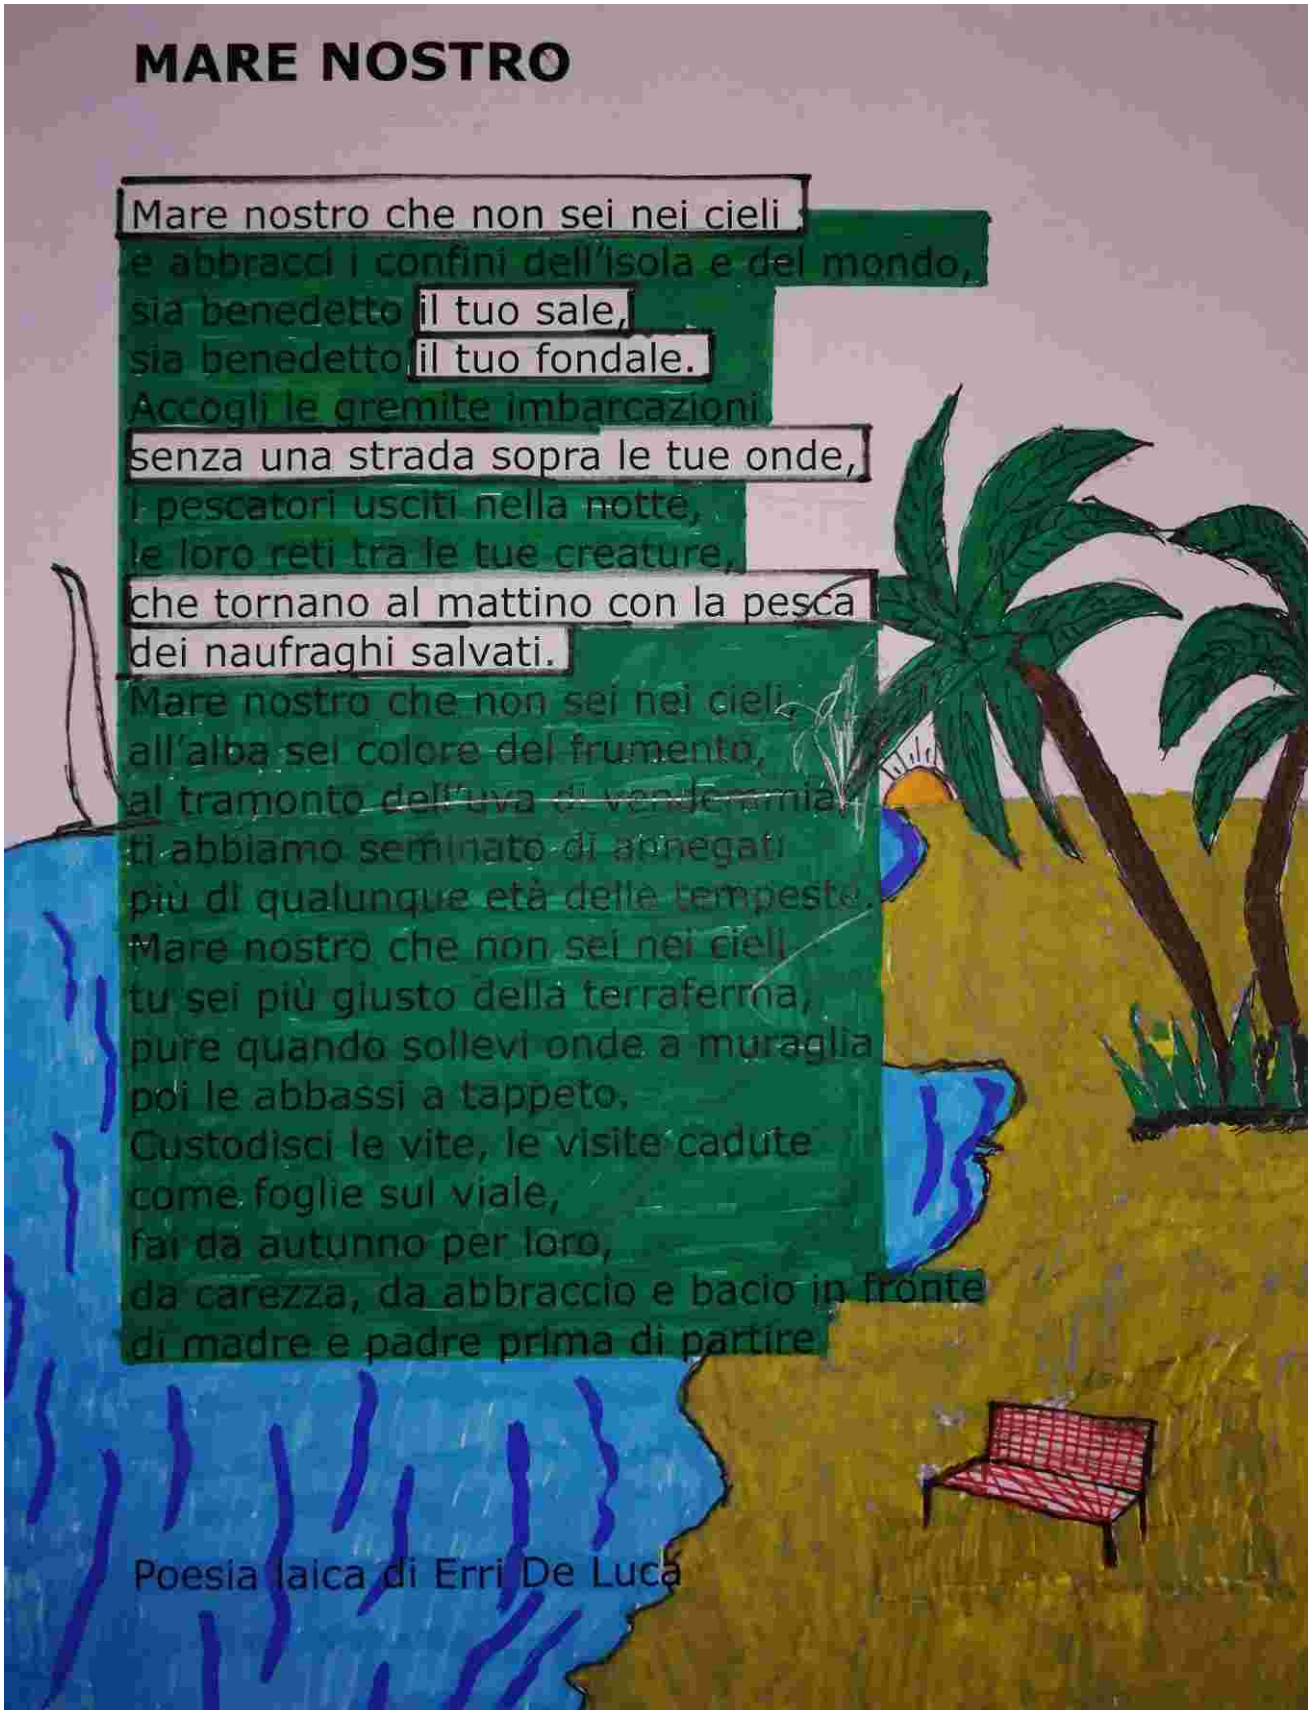 MARE NOSTRO
Mare nostro che non sei nei cieli
e abbracci i confini dell'isola e del mondo,
sia benedetto il tuo sale,
sia benedetto il tuo fondale.
Accogli le gremite imbarcazioni
senza una strada sopra le tue onde,
i pescatori usciti nella notte,
le loro reti tra le tue creature,
che tornano al mattino con la pesca
dei naufraghi salvati.
Mare nostro che non sei nei cieli,
all'alba sei colore del frumento,
al tramonto dell'uva di vendemmia,
ti abbiamo seminato di annegati
più di qualunque età delle tempeste.
Mare nostro che non sei nei cieli,
tu sei più giusto della terraferma,
pure quando sollevi onde a muraglia
poi le abbassi a tappeto.
Custodisci le vite, le visite cadute
come foglie sul viale,
fai da autunno per loro,
da carezza, da abbraccio e bacio in fronte
di madre e padre prima di partire
Poesia laica di Erri De Luca